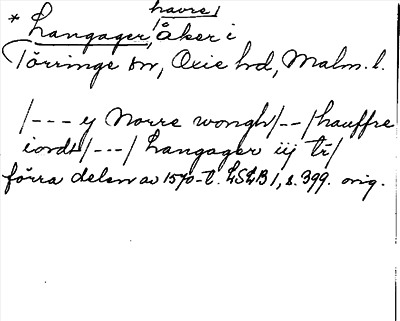 havre/
* Langager, åker i
Törringe sn, Oxie hd, Malm. l.
/--- y Norre wongh/--/hauffre
iordt/---/ Langager iij tr/
förra delen av 1570-t. LSLB 1, s. 399. orig.